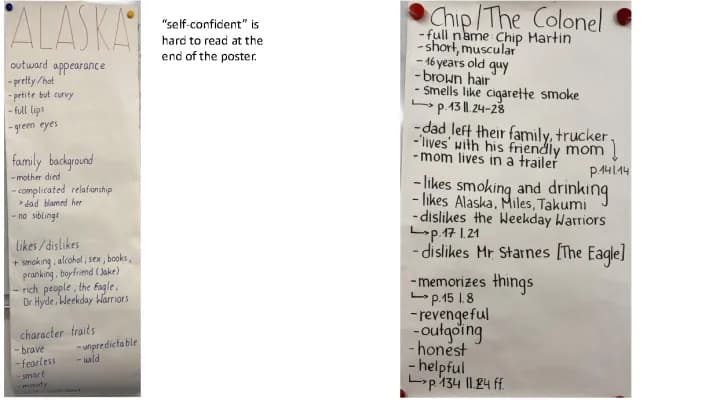 ALASKA
outward appearance
- pretty/hot
- petite but curvy
- full lips
- green eyes
family background
- mother died
- complicated relationship
> dad blamed her
- no siblings
likes/dislikes
+ smoking, alcohol, sex, books,
pranking, boyfriend (Jake)
- rich people, the Eagle,
Dr. Hyde, Weekday Warriors
character traits
- brave - unpredictable
- fearless - wild
- smart
- moody
"self-confident" is
hard to read at the
end of the poster.
Chip/The Colonel
- full name Chip Martin
- short, muscular
- 16 years old guy
- brown hair
- smells like cigarette smoke
↳ p. 13 ll. 24-28
- dad left their family, trucker
- 'lives' with his friendly mom ↓
- mom lives in a trailer p.14 l.14
- likes smoking and drinking
- likes Alaska, Miles, Takumi
- dislikes the Weekday Warriors
↳ p. 17 l. 21
- dislikes Mr. Starnes [The Eagle]
- memorizes things
↳ p.15 l. 8
- revengeful
- outgoing
- honest
- helpful
↳ p. 134 ll. 24 ff.